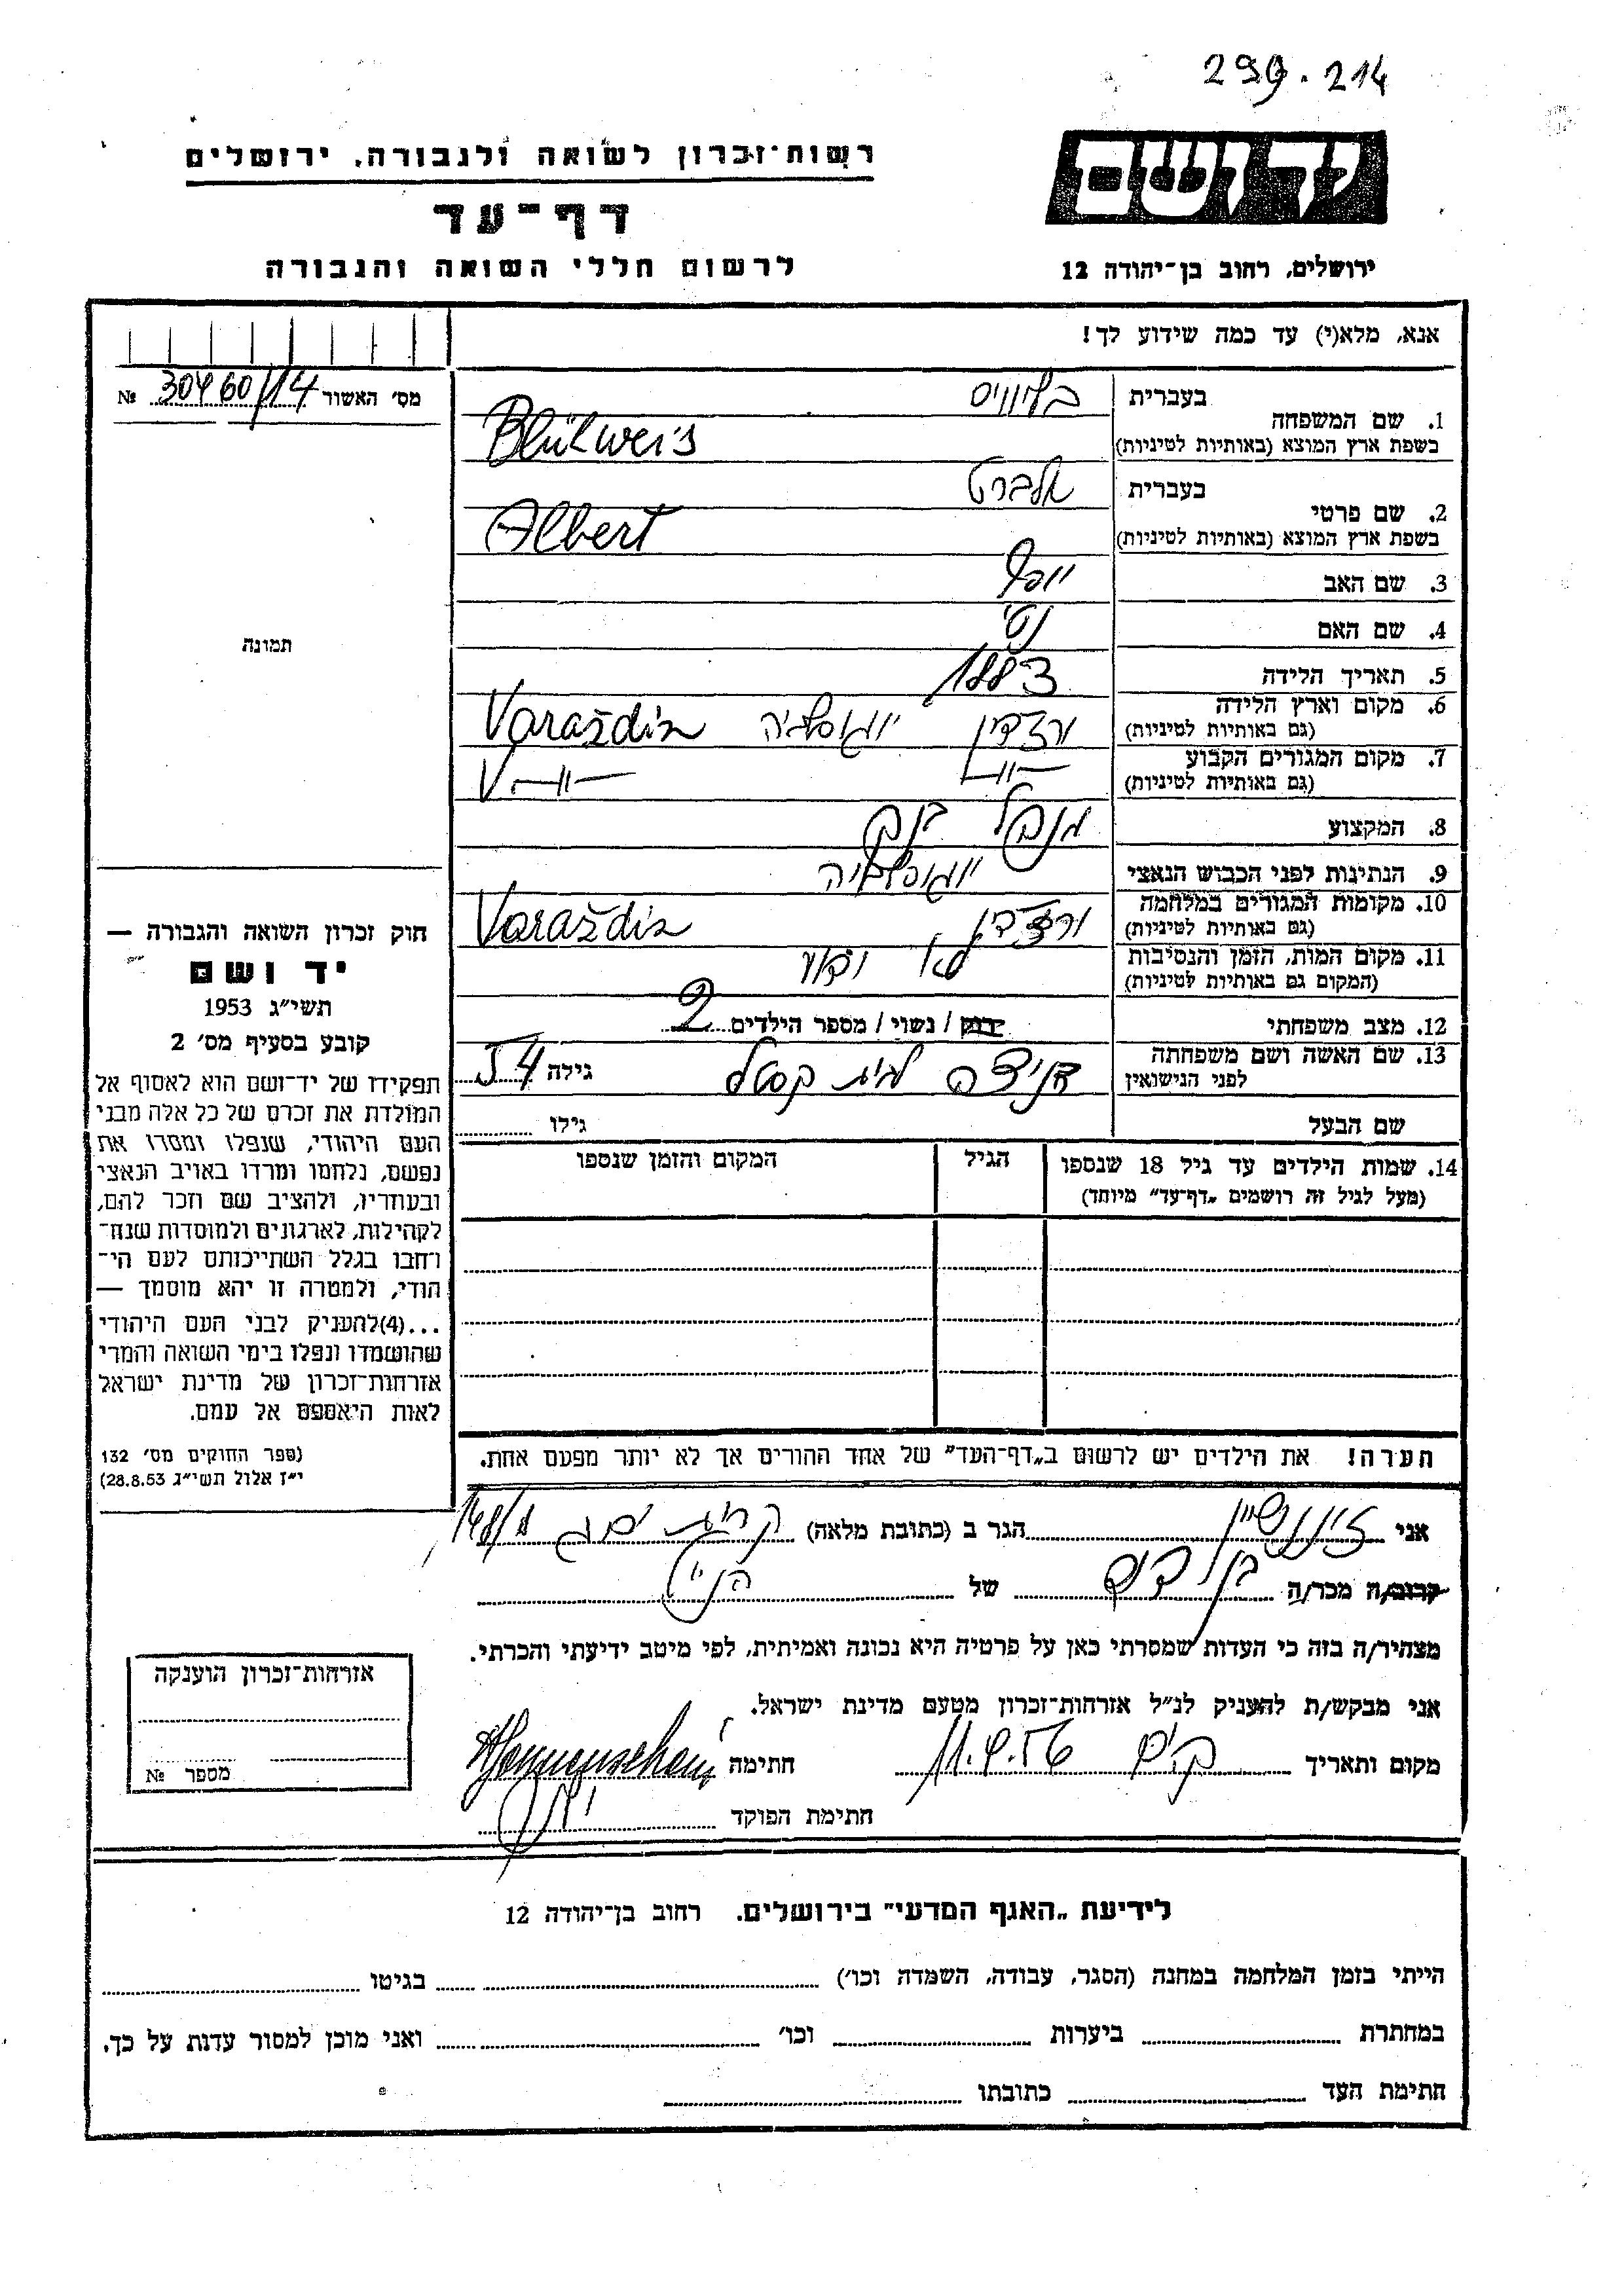 299.214
רשות־זכרון לשואה ולגבורה, ירושלים
יד ושם
דף־עד
לרשום חללי השואה והגבורה
ירושלים, רחוב בן־יהודה 12
אנא, מלא(י) עד כמה שידוע לך!
מס׳ האשור № 30460/14
1. שם המשפחה
בעברית
בשפת ארץ המוצא (באותיות לטיניות) Blühweis
2. שם פרטי
בעברית אלברט
בשפת ארץ המוצא (באותיות לטיניות) Albert
3. שם האב יוסף
4. שם האם נטי
5. תאריך הלידה 1883
6. מקום וארץ הלידה (גם באותיות לטיניות) ורזדין יוגוסלביה Varaždin
7. מקום המגורים הקבוע (גם באותיות לטיניות) —״— V—״—
8. המקצוע מנהל בנק
9. הנתינות לפני הכבוש הנאצי יוגוסלביה
10. מקומות המגורים במלחמה (גם באותיות לטיניות) ורזדין Varaždin
11. מקום המות, הזמן והנסיבות (המקום גם באותיות לטיניות) לא ידוע
12. מצב משפחתי רוק / נשוי / מספר הילדים 2
13. שם האשה ושם משפחתה לפני הנישואין לבית גילה 54
שם הבעל גילו
תמונה
חוק זכרון השואה והגבורה —
יד ושם
תשי״ג 1953
קובע בסעיף מס׳ 2
תפקידו של יד־ושם הוא לאסוף אל
המולדת את זכרם של כל אלה מבני
העם היהודי, שנפלו ומסרו את
נפשם, נלחמו ומרדו באויב הנאצי
ובעוזריו, ולהציב שם וזכר להם,
לקהילות, לארגונים ולמוסדות שנח־
רחבו בגלל השתייכותם לעם הי־
הודי, ולמטרה זו יהא מוסמך —
...(4)להעניק לבני העם היהודי
שהושמדו ונפלו בימי השואה והמרי
אזרחות־זכרון של מדינת ישראל
לאות היאספם אל עמם.
(ספר החוקים מס׳ 132
י״ז אלול תשי״ג 28.8.53)
14. שמות הילדים עד גיל 18 שנספו
(מעל לגיל זה רושמים „דף־עד״ מיוחד)
הגיל
המקום והזמן שנספו
הערה! את הילדים יש לרשום ב„דף־העד״ של אחד ההורים אך לא יותר מפעם אחת.
אני זוננשיין הגר ב (כתובת מלאה) קרית ים ג 148/
קרוב/ה מכר/ה של הנ״ל
מצהיר/ה בזה כי העדות שמסרתי כאן על פרטיה היא נכונה ואמיתית, לפי מיטב ידיעתי והכרתי.
אני מבקש/ת להעניק לנ״ל אזרחות־זכרון מטעם מדינת ישראל.
מקום ותאריך ק.ים 11.4.56 חתימה
חתימת הפוקד
אזרחות־זכרון הוענקה
מספר №
לידיעת „האגף המדעי״ בירושלים. רחוב בן־יהודה 12
הייתי בזמן המלחמה במחנה (הסגר, עבודה, השמדה וכו׳) בגיטו
במחתרת ביערות וכו׳ ואני מוכן למסור עדות על כך.
חתימת העד כתובתו